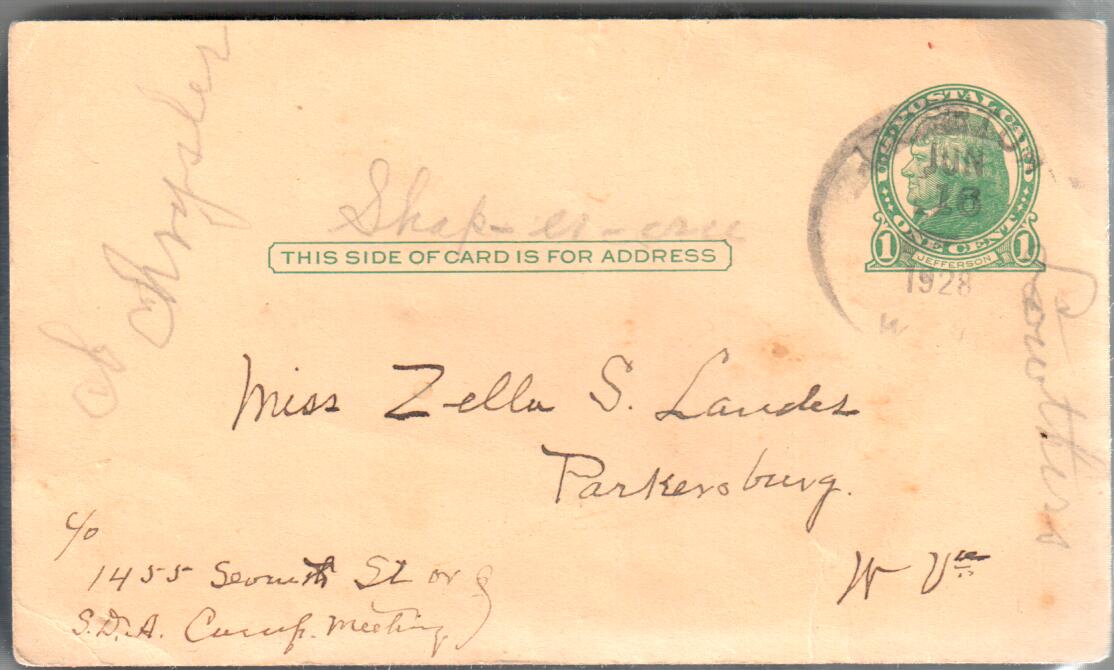 U.S. POSTAL CARD
JUN
18
1928
1 ONE CENT 1
JEFFERSON
Chrysler
THIS SIDE OF CARD IS FOR ADDRESS
Miss Zella S. Lander
Parkersburg.
W Va
c/o
1455 Seventh St or
S.D.A. Camp. Meeting